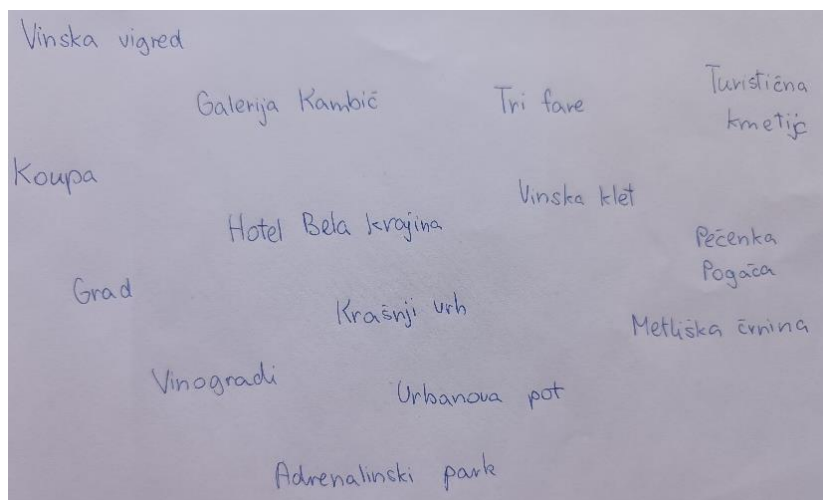 Vinska vigred
Galerija Kambič
Tri fare
Turistična
kmetija
Koupa
Vinska klet
Hotel Bela krajina
Pečenka
Pogača
Grad
Krašnji vrh
Metliška črnina
Vinogradi
Urbanova pot
Adrenalinski park